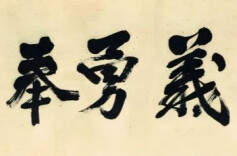 義勇奉